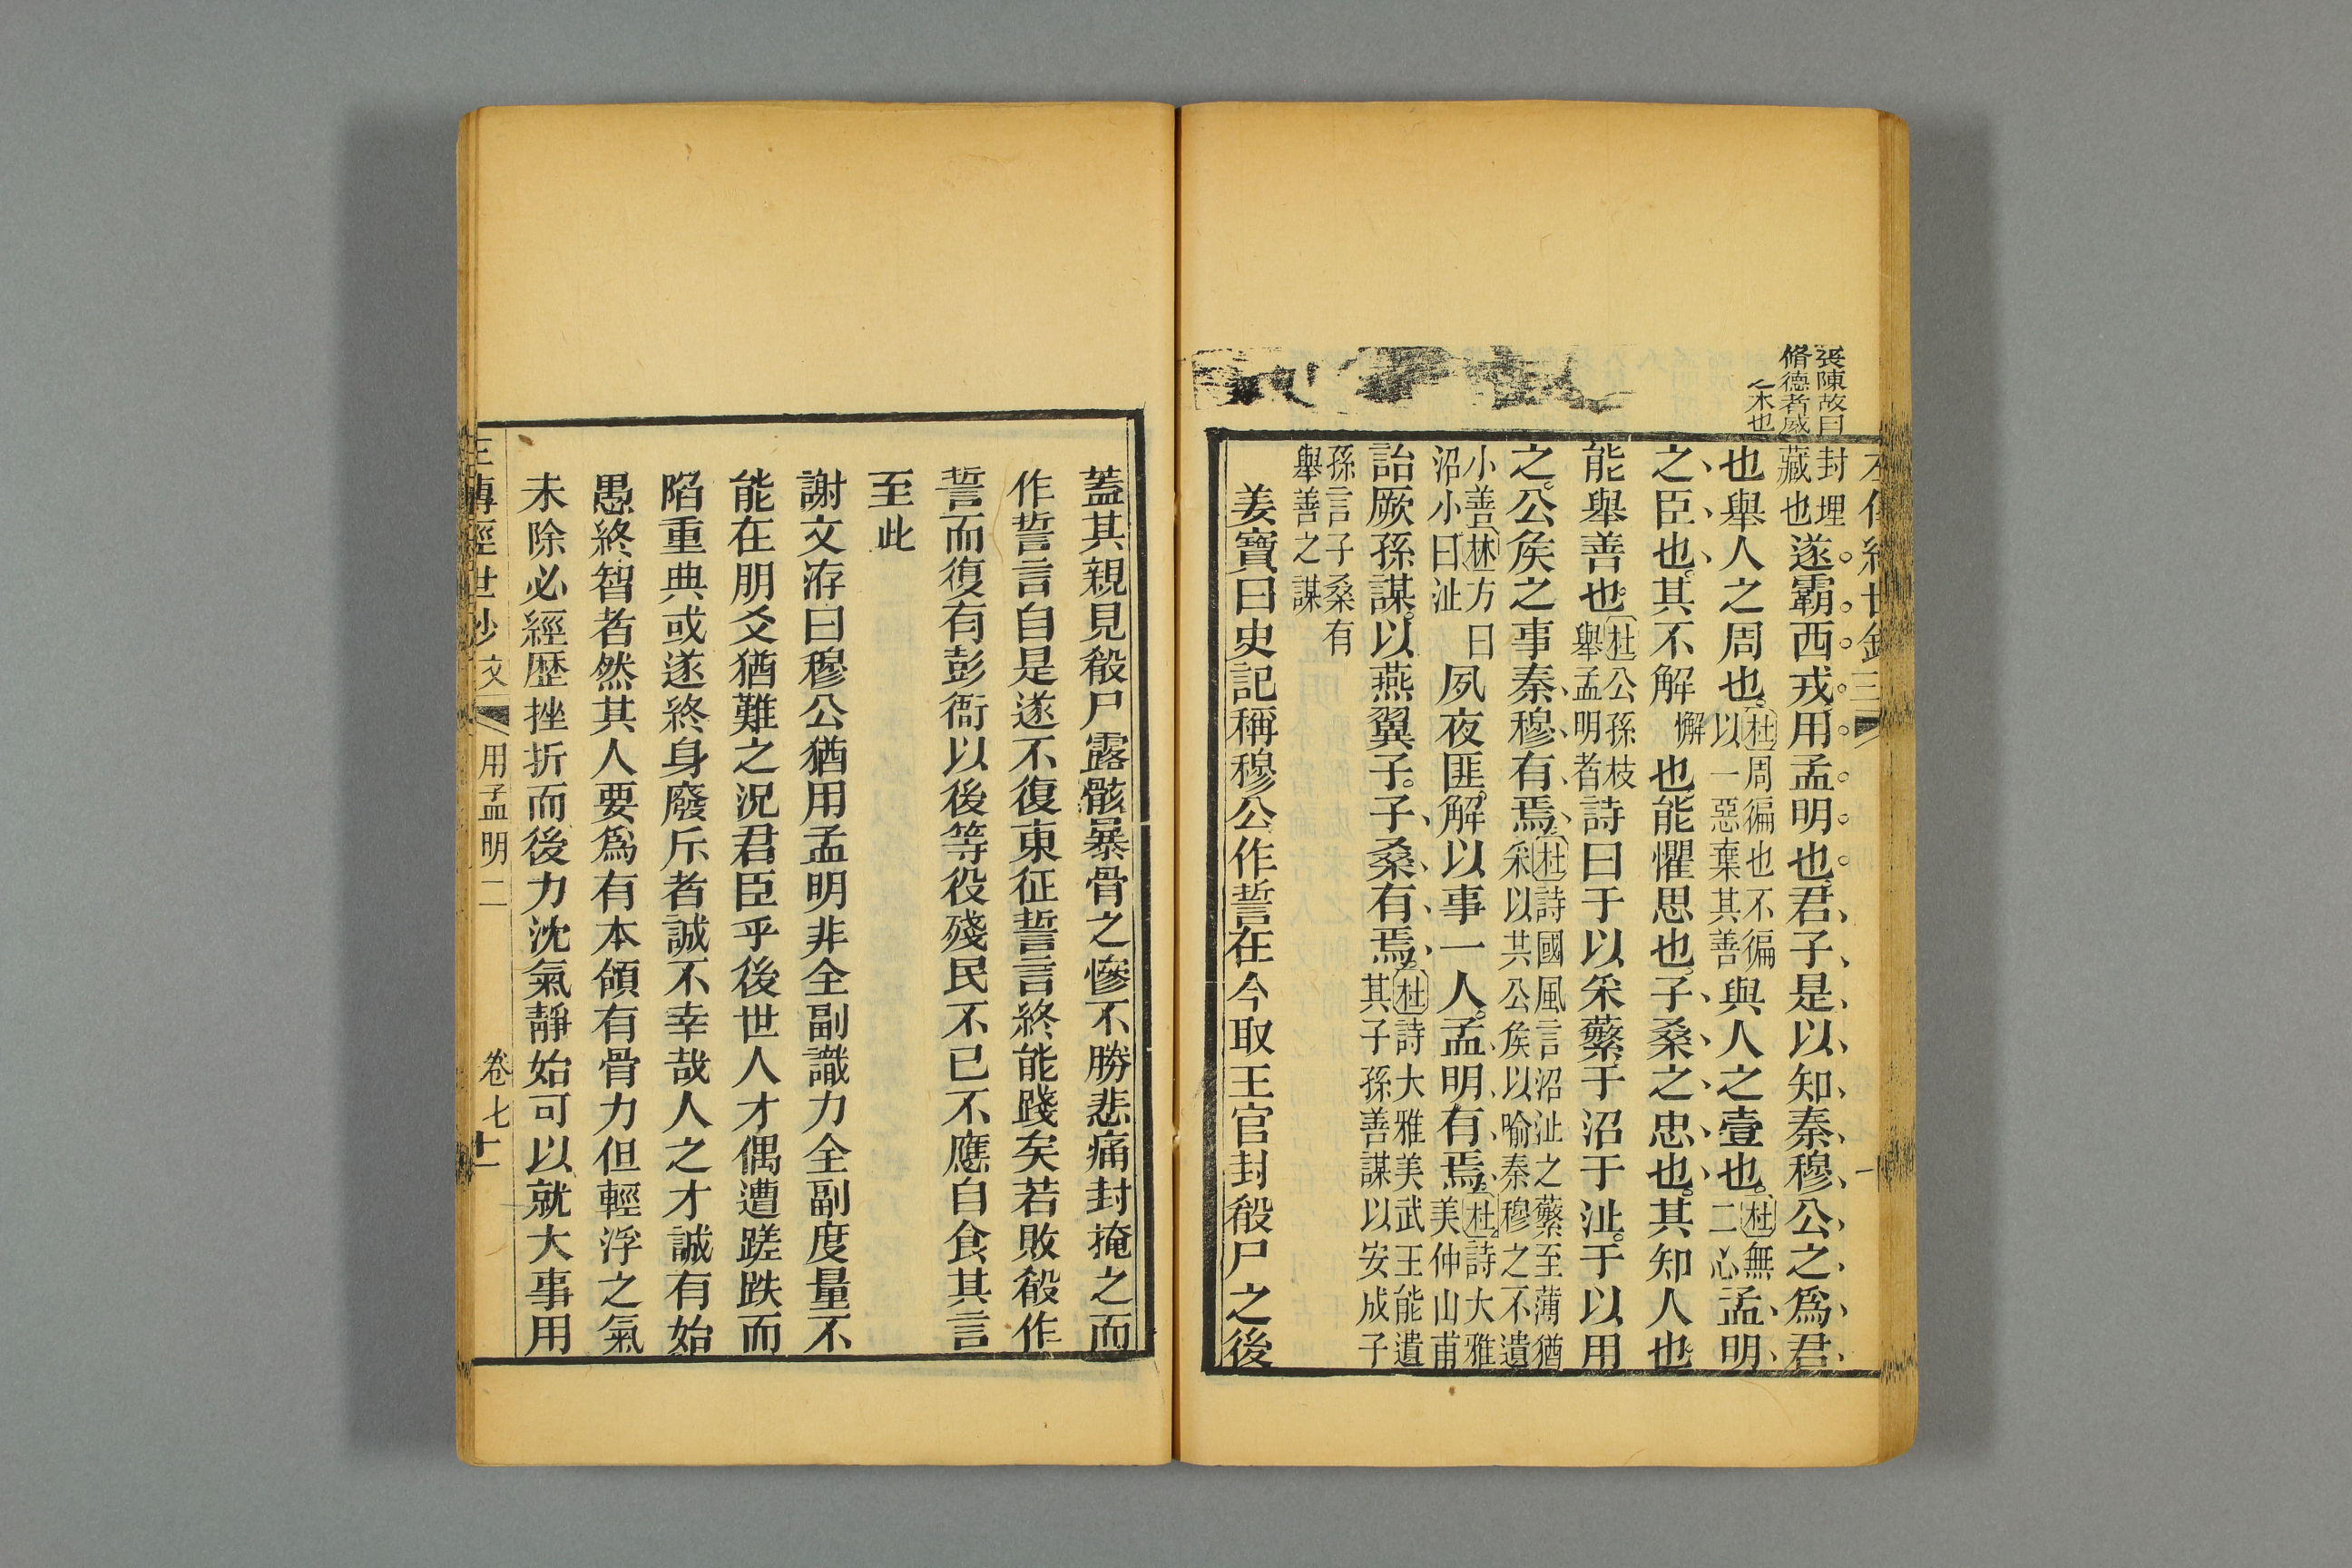 張陳故曰
脩德者威
之木也
封埋
藏也遂霸西戎用孟明也君子是以知秦穆公之爲君
也舉人之周也杜周徧也不徧
以一惡棄其善與人之壹也杜無
二心孟明
之臣也其不解懈也能懼思也子桑之忠也其知人也
能舉善也杜公孫枝
舉孟明者詩曰于以采蘩于沼于沚于以用
之公矦之事秦穆有焉杜詩國風言沼沚之蘩至薄猶
采以共公矦以喻秦穆之不遺
小善林方曰
沼小曰沚夙夜匪解以事一人孟明有焉杜詩大雅
美仲山甫
詒厥孫謀以燕翼子子桑有焉杜詩大雅美武王能遺
其子孫善謀以安成子
孫言子桑有
舉善之謀
姜寶曰史記稱穆公作誓在今取王官封殽尸之後
蓋其親見殽尸露骸暴骨之慘不勝悲痛封掩之而
作誓言自是遂不復東征誓言終能踐矣若敗殽作
誓而復有彭衙以後等役殘民不已不應自食其言
至此
謝文洊曰穆公猶用孟明非全副識力全副度量不
能在朋爻猶難之況君臣乎後世人才偶遭蹉跌而
陷重典或遂終身廢斥者誠不幸哉人之才誠有始
愚終智者然其人要爲有本領有骨力但輕浮之氣
未除必經歷挫折而後力沈氣靜始可以就大事用
左傳經世鈔 文 用孟明二 卷七 十一